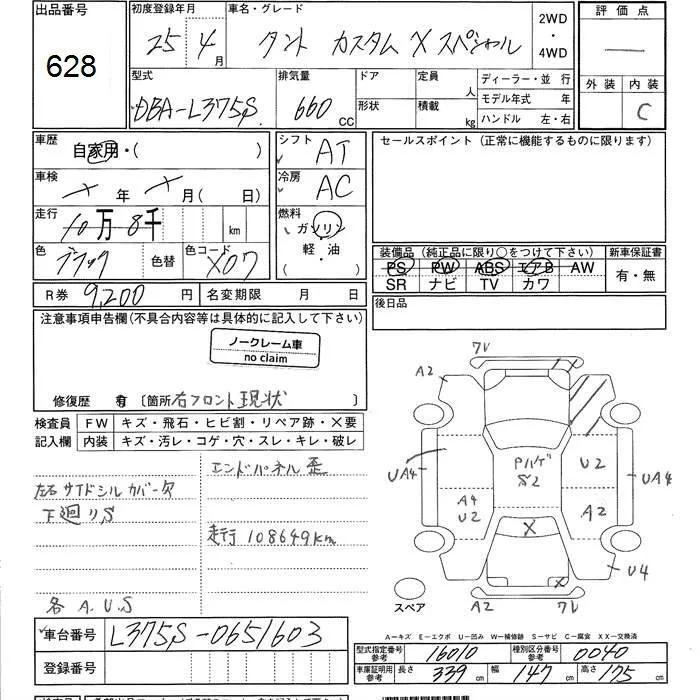 出品番号 628
初度登録年月 25年 4月
車名・グレード タント カスタム X スペシャル
2WD ・ 4WD
評価点 —
外装 内装 C
型式 DBA-L375S
排気量 660 CC
ドア 形状
定員 人
積載 kg
ディーラー・並行
モデル年式 年
ハンドル 左・右
車歴 自家用・( )
シフト AT
車検 X 年 X 月( 日)
冷房 AC
走行 10万8千 km
燃料 ガソリン 軽・油 ・( )
色 ブラック 色替
色コード X07
R券 9,200 円
名変期限 月 日
セールスポイント(正常に機能するものに限ります)
装備品(純正品に限り○をつけて下さい)
新車保証書
PS PW ABS エアB AW
有・無
SR ナビ TV カワ
後日品
注意事項申告欄(不具合内容等は具体的に記入して下さい)
ノークレーム車
no claim
修復歴 有 〔箇所 右フロント現状 〕
検査員記入欄
FW キズ・飛石・ヒビ割・リペア跡・X要
内装 キズ・汚レ・コゲ・穴・スレ・キレ・破レ
エンドパネル歪
左右サイドシルカバー欠
下廻りS
走行 108649km
各 A.U.S
A2 ワレ
UA4 Pハゲ S2 U2 UA4
A4 U2 A2
X
X U4
スペア A2 ワレ
A−キズ E−エクボ U−凹み W−補修跡 S−サビ C−腐食 XX−交換済
車台番号 L375S-0651603
型式指定番号 参考 16010
種別区分番号 参考 0040
登録番号
車庫証明用 参考 長さ 339 cm 幅 147 cm 高さ 175 cm